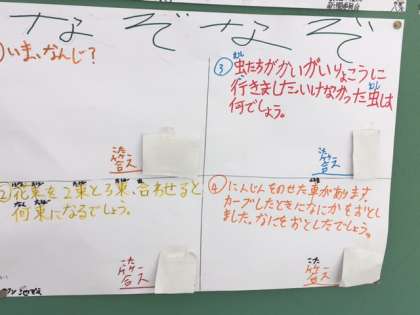 なぞなぞ
①いま、なんじ？
答え
こた
③虫たちがかいがいりょこうに
むし
行きました。いけなかった虫は
い
むし
何でしょう。
答え
こた
②花束を2束と3束、合わせると
何束になるでしょう。
答え
こた
④にんじんをのせた車があります。
カーブしたときになにかをおとし
ました。なにをおとしたでしょう。
答え
こた